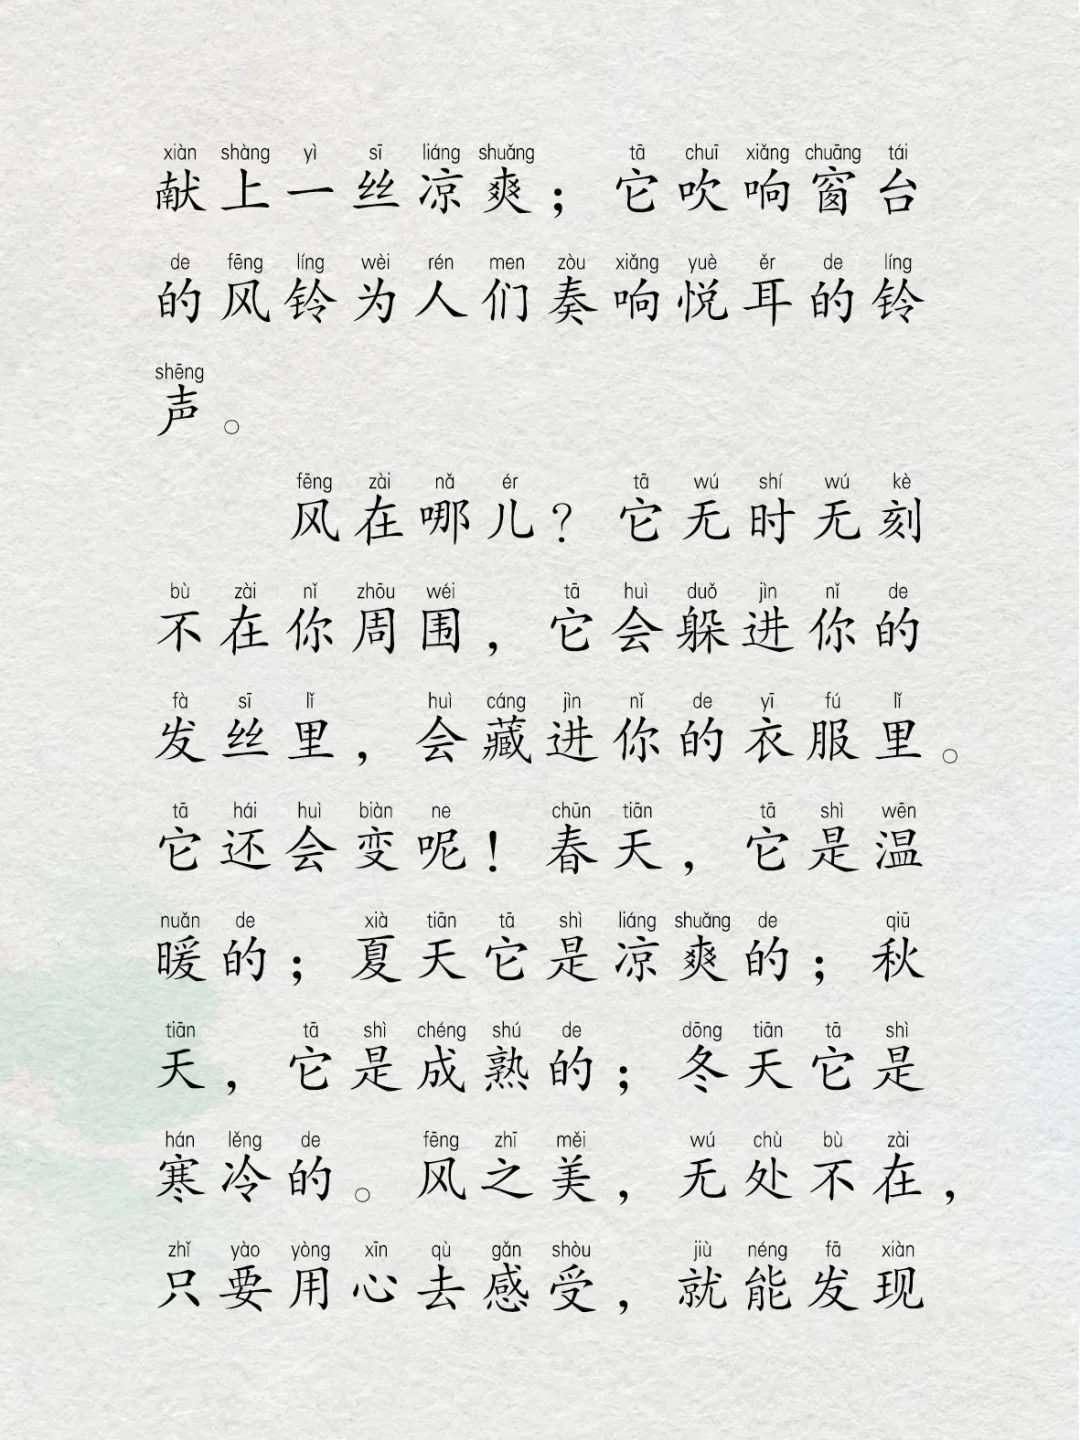 xiàn shàng yì sī liáng shuǎng tā chuī xiǎng chuāng tái
献上一丝凉爽；它吹响窗台
de fēng líng wèi rén men zòu xiǎng yuè ěr de líng
的风铃为人们奏响悦耳的铃
shēng
声。
fēng zài nǎ ér tā wú shí wú kè
风在哪儿？它无时无刻
bù zài nǐ zhōu wéi tā huì duǒ jìn nǐ de
不在你周围，它会躲进你的
fà sī lǐ huì cáng jìn nǐ de yī fú lǐ
发丝里，会藏进你的衣服里。
tā hái huì biàn ne chūn tiān tā shì wēn
它还会变呢！春天，它是温
nuǎn de xià tiān tā shì liáng shuǎng de qiū
暖的；夏天它是凉爽的；秋
tiān tā shì chéng shú de dōng tiān tā shì
天，它是成熟的；冬天它是
hán lěng de fēng zhī měi wú chù bù zài
寒冷的。风之美，无处不在，
zhǐ yào yòng xīn qù gǎn shòu jiù néng fā xiàn
只要用心去感受，就能发现